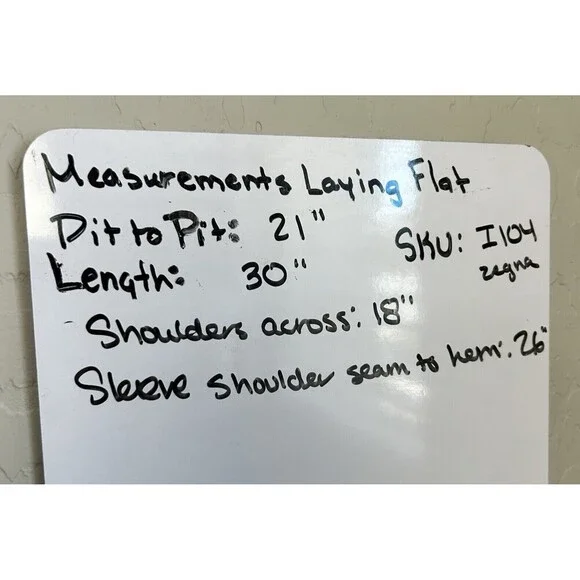 Measurements Laying Flat
Pit to Pit: 21"
SKU: I104
zegna
Length: 30"
- Shoulders across: 18"
Sleeve shoulder seam to hem: 26"